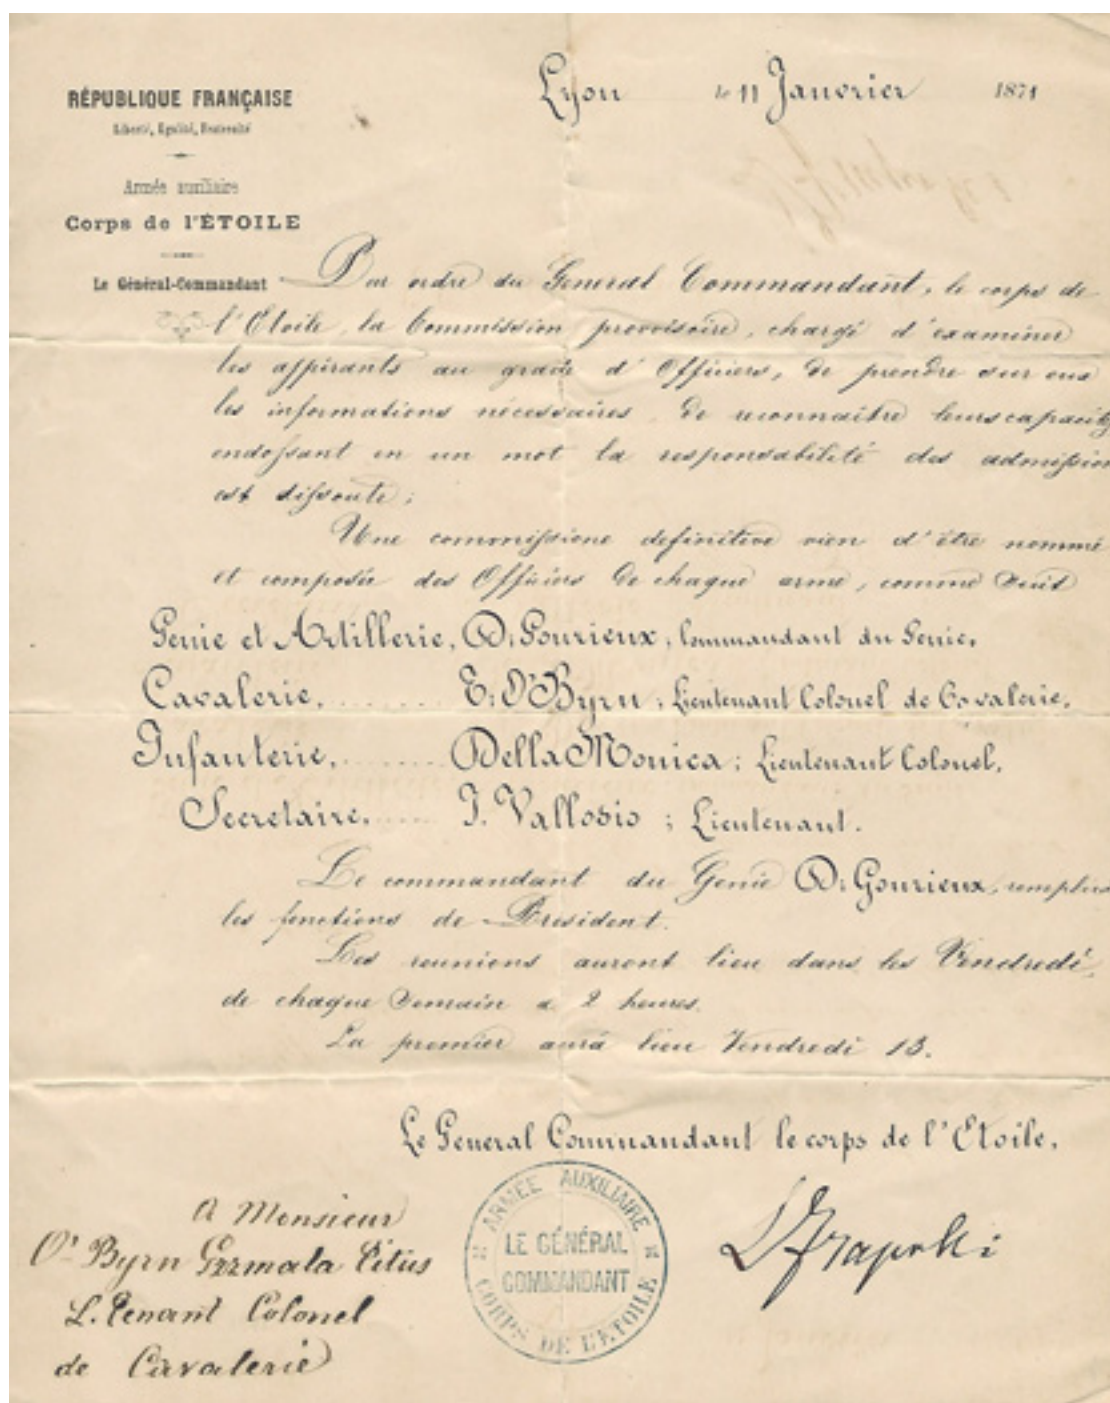 RÉPUBLIQUE FRANÇAISE
Liberté, Egalité, Fraternité
Armée auxiliaire
Corps de l'ÉTOILE
Le Général-Commandant
Lyon le 11 Janvrier 1871
Par ordre du General Commandant, le corps de
l'Etoile, la Commission provvisoire, chargé d'examiner
les aspirants au grade d'Officiers, de prendre sur eux
les informations nécessaires, de reconnaitre leurs capacité
endossant en un mot la responsabilité des admission
est dissoute;
Une commissione definitive vien d'être nommé
et composée des Officiers de chaque arme, comme suit
Genie et Artillerie, D. Gourieux, Commandant du Genie,
Cavalerie, ....... E. O'Byrn; Lieutenant Colonel de Cavalerie,
Infanterie, ....... Della Monica; Lieutenant Colonel,
Secretaire, ..... J. Vallosio; Lieutenant.
Le commandant du Genie D. Gourieux, remplira
les fonctions de President.
Les reunions auront lieu dans les Vendredi
de chaque semain a 2 heures.
La premier aura lieu Vendredi 13.
Le General Commandant le corps de l'Etoile,
ARMÉE AUXILIAIRE
LE GÉNÉRAL
COMMANDANT
CORPS DE L'ETOILE
L Frapolli
A Monsieur
O' Byrn Grzmala Titus
L. Tenant Colonel
de Cavalerie